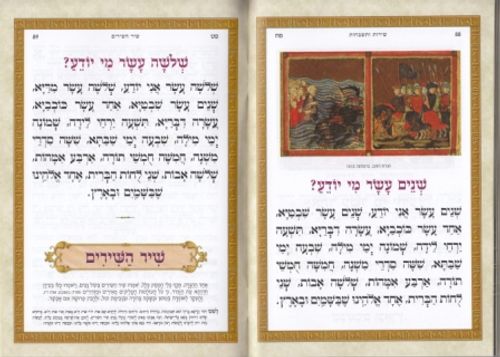 88 שירות ותשבחות פח
שְׁנֵים עָשָׂר מִי יוֹדֵעַ?
שְׁנֵים עָשָׂר אֲנִי יוֹדֵעַ, שְׁנֵים עָשָׂר שִׁבְטַיָּא,
אַחַד עָשָׂר כּוֹכְבַיָּא, עֲשָׂרָה דִבְּרַיָּא, תִּשְׁעָה
יַרְחֵי לֵידָה, שְׁמוֹנָה יְמֵי מִילָה, שִׁבְעָה יְמֵי
שַׁבַּתָּא, שִׁשָּׁה סִדְרֵי מִשְׁנָה, חֲמִשָּׁה חֻמְשֵׁי
תוֹרָה, אַרְבַּע אִמָּהוֹת, שְׁלֹשָׁה אָבוֹת, שְׁנֵי
לֻחוֹת הַבְּרִית, אֶחָד אֱלֹהֵינוּ שֶׁבַּשָּׁמַיִם וּבָאָרֶץ.
פט שיר השירים 89
שְׁלֹשָׁה עָשָׂר מִי יוֹדֵעַ?
שְׁלֹשָׁה עָשָׂר אֲנִי יוֹדֵעַ, שְׁלֹשָׁה עָשָׂר מִדַּיָּא,
שְׁנֵים עָשָׂר שִׁבְטַיָּא, אַחַד עָשָׂר כּוֹכְבַיָּא,
עֲשָׂרָה דִבְּרַיָּא, תִּשְׁעָה יַרְחֵי לֵידָה, שְׁמוֹנָה
יְמֵי מִילָה, שִׁבְעָה יְמֵי שַׁבַּתָּא, שִׁשָּׁה סִדְרֵי
מִשְׁנָה, חֲמִשָּׁה חֻמְשֵׁי תוֹרָה, אַרְבַּע אִמָּהוֹת,
שְׁלֹשָׁה אָבוֹת, שְׁנֵי לֻחוֹת הַבְּרִית, אֶחָד אֱלֹהֵינוּ
שֶׁבַּשָּׁמַיִם וּבָאָרֶץ.
שִׁיר הַשִּׁירִים